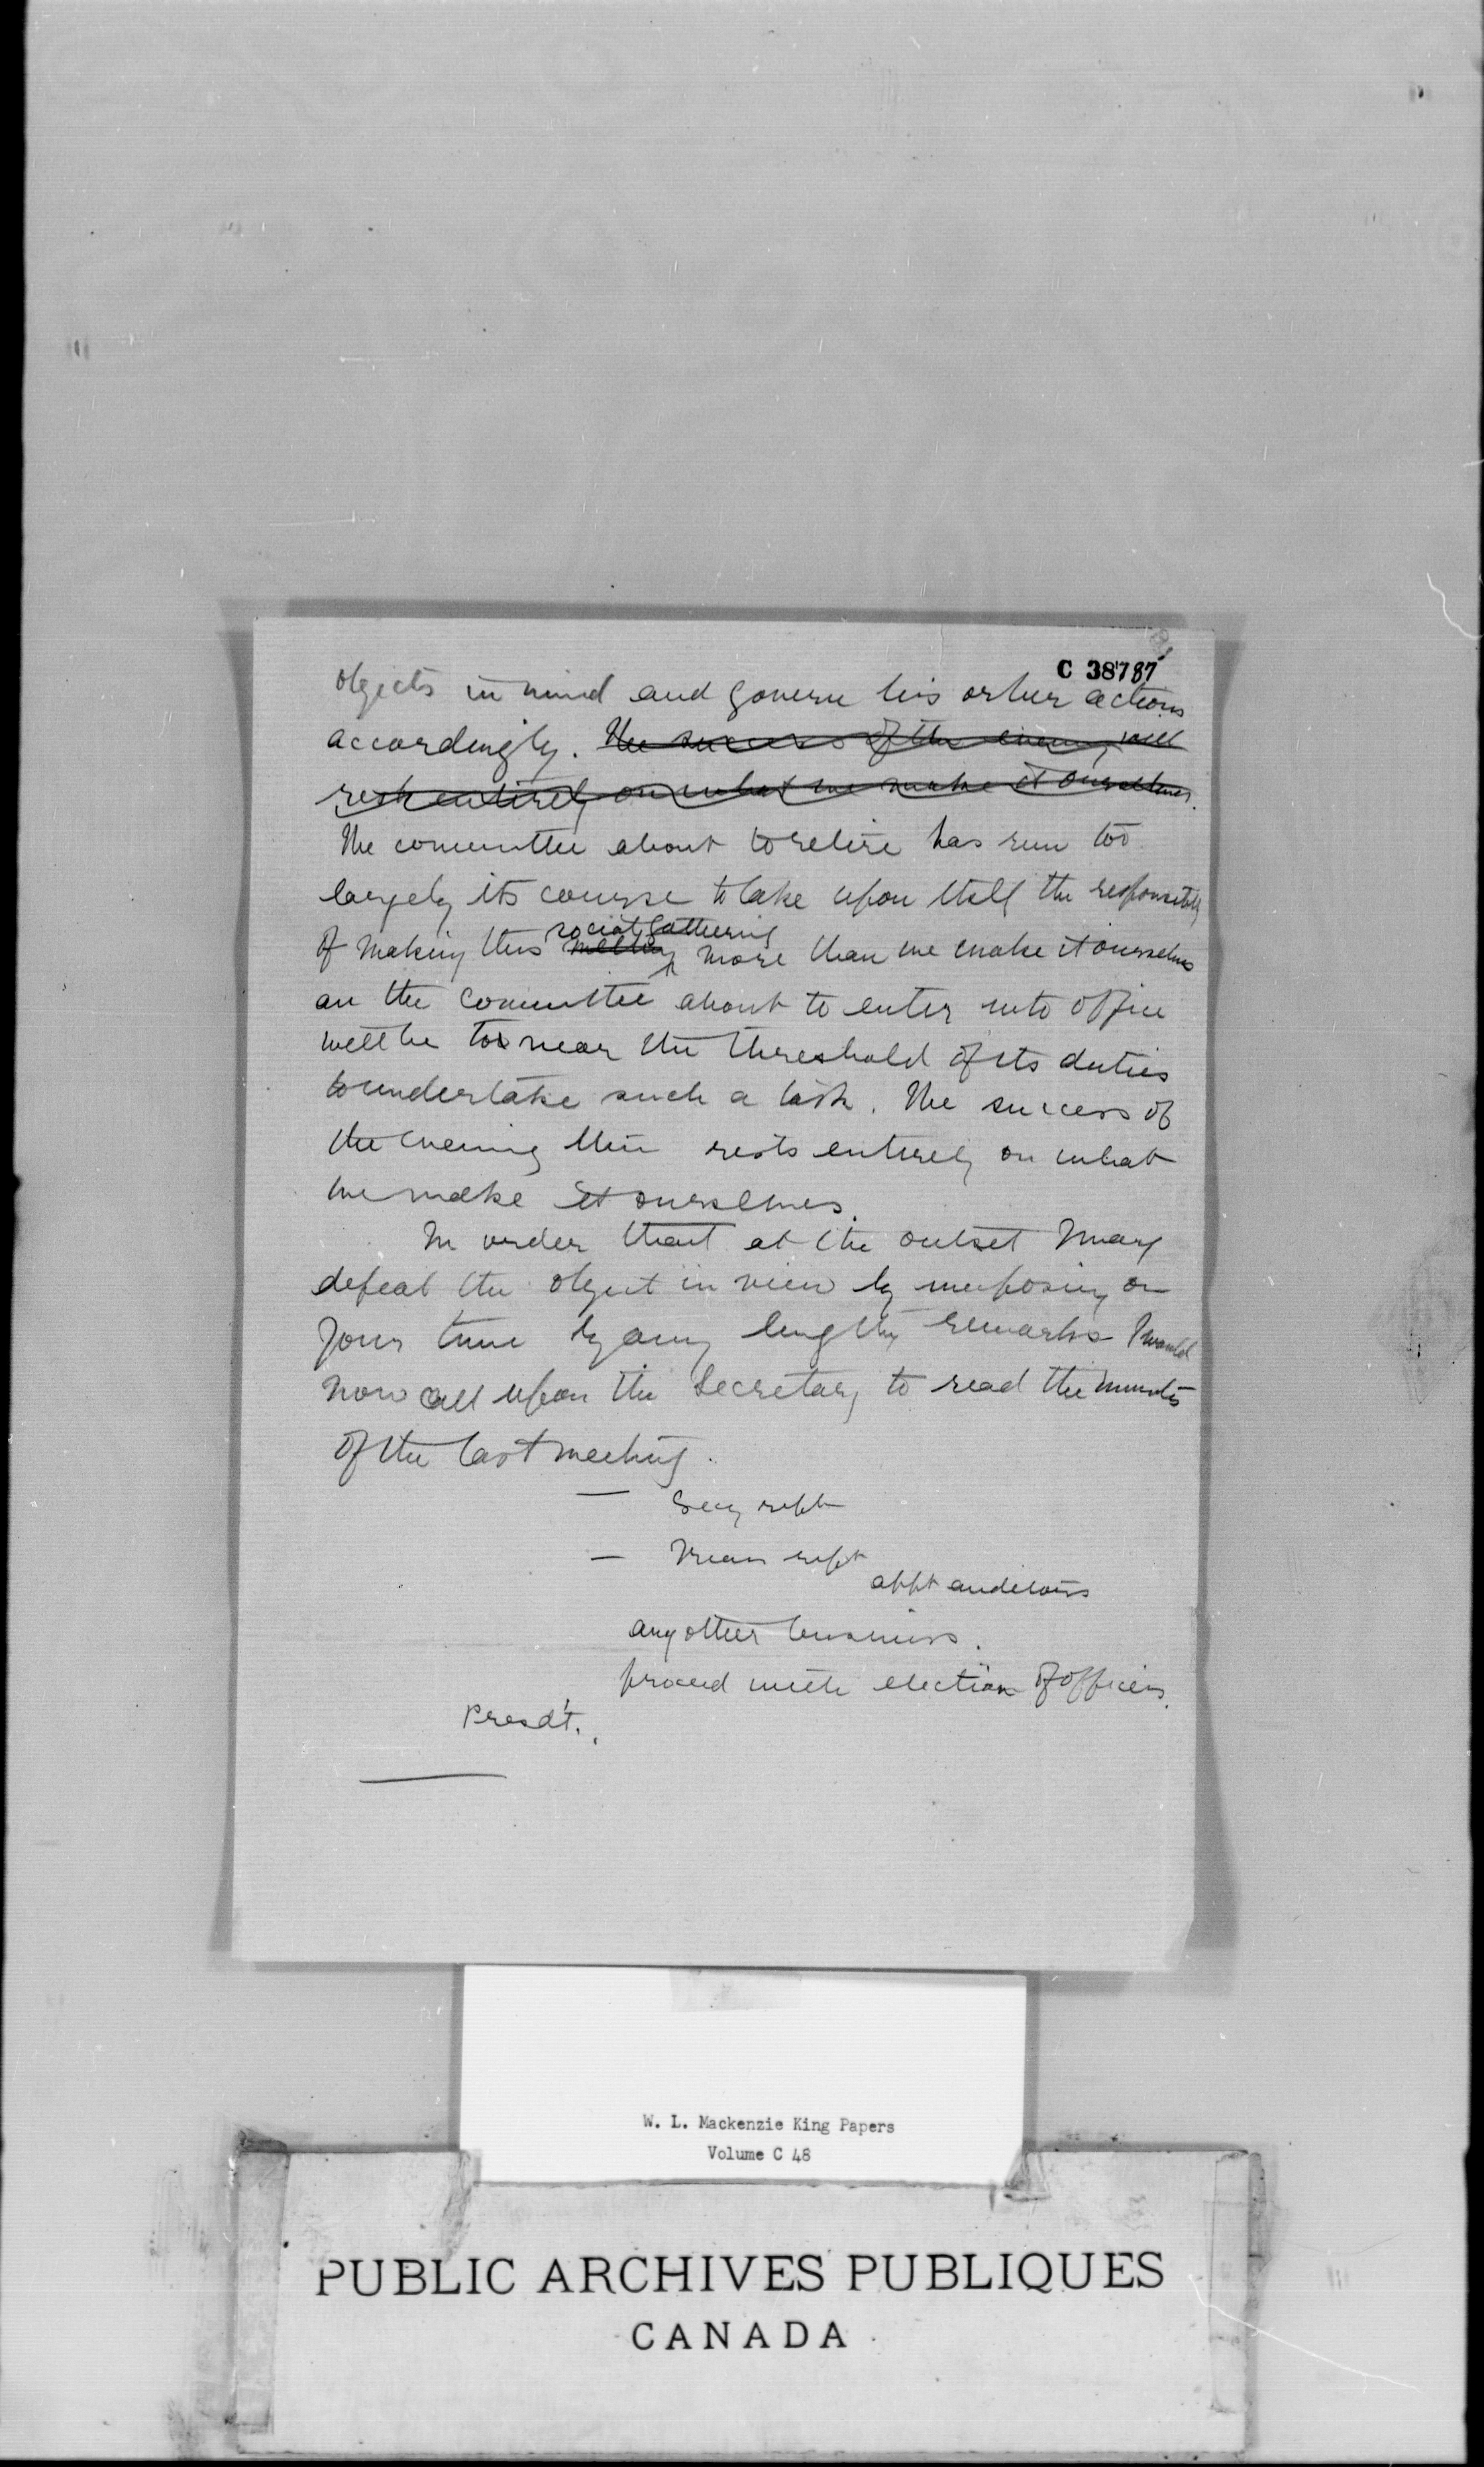 C 38787
objects in mind and govern his or her actions
accordingly. The success of the evening will
rest entirely on what we make it ourselves.
The committee about to retire has run too
largely its course to take upon itself the responsibility
social gathering
of making this meeting more than we make it ourselves
an the committee about to enter into office
will be too near the threshold of its duties
to undertake such a task. The success of
the evening then rests entirely on what
we make it ourselves.
In order that at the outset I may
defeat the object in view by imposing on
your time by any lengthy remarks I would
now call upon the Secretary to read the minutes
of the last meeting.
— Secy rept
— Treas rept
appt auditors
any other business.
proceed with election of officers.
Presd't.
W. L. Mackenzie King Papers
Volume C 48
PUBLIC ARCHIVES PUBLIQUES
CANADA